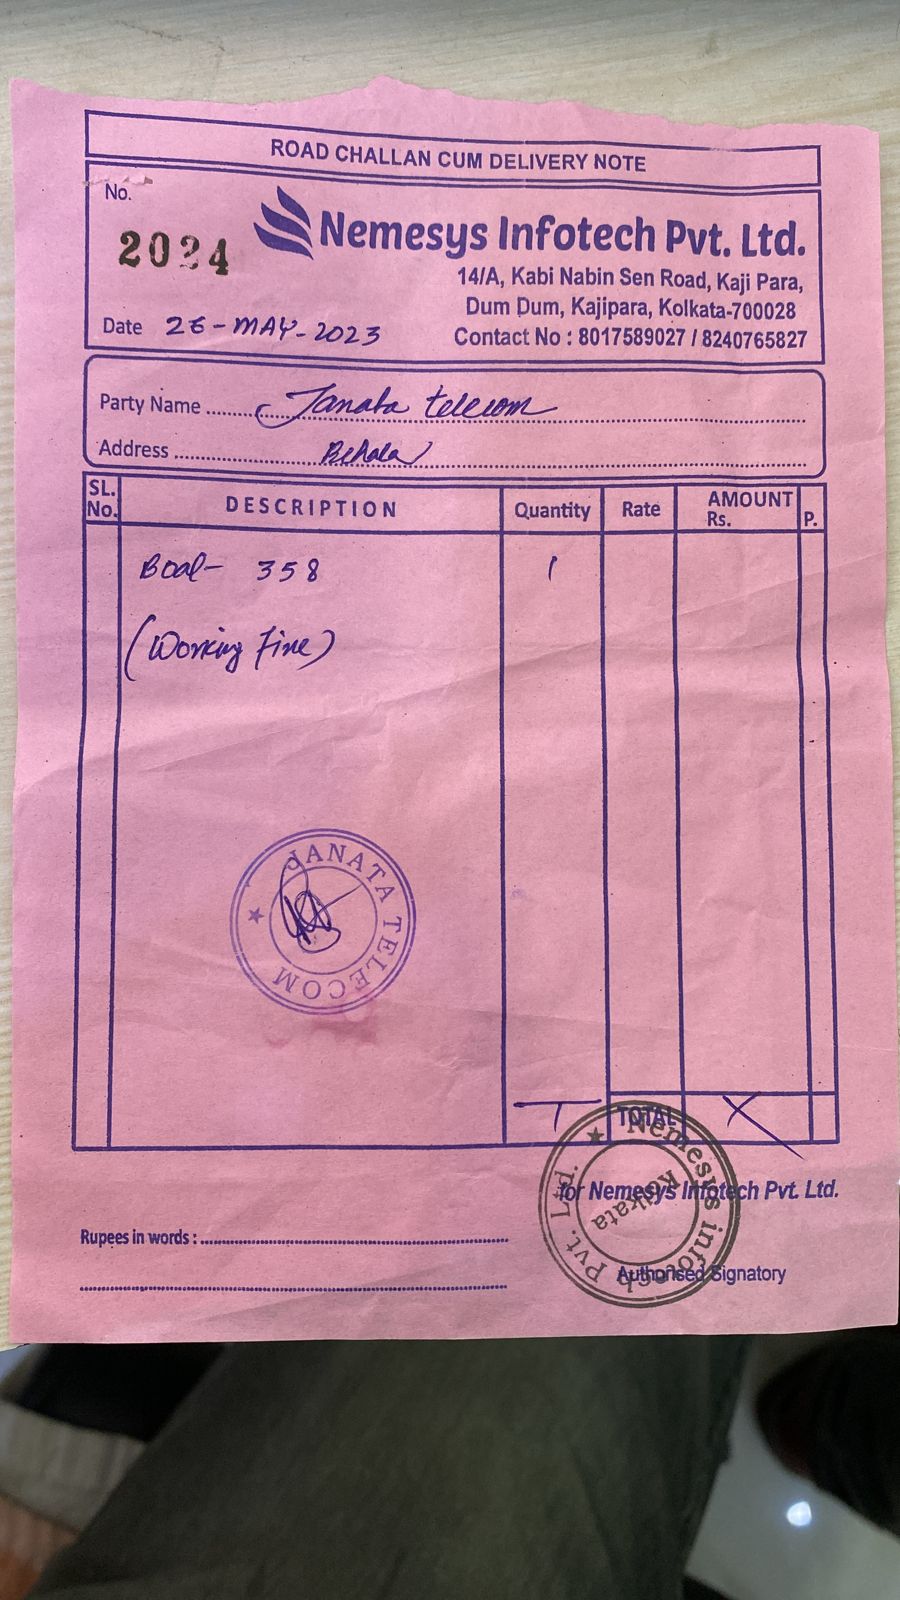 ROAD CHALLAN CUM DELIVERY NOTE
No.
2024
Nemesys Infotech Pvt. Ltd.
14/A, Kabi Nabin Sen Road, Kaji Para,
Dum Dum, Kajipara, Kolkata-700028
Contact No : 8017589027 / 8240765827
Date 26-MAY-2023
Party Name Janata telecom
Address Behala
SL. No. DESCRIPTION Quantity Rate AMOUNT Rs. P.
358 1
(Working Fine)
JANATA TELECOM
TOTAL
Nemesys infotech Pvt. Ltd.
Kolkata
for Nemesys Infotech Pvt. Ltd.
Rupees in words :
Authorised Signatory